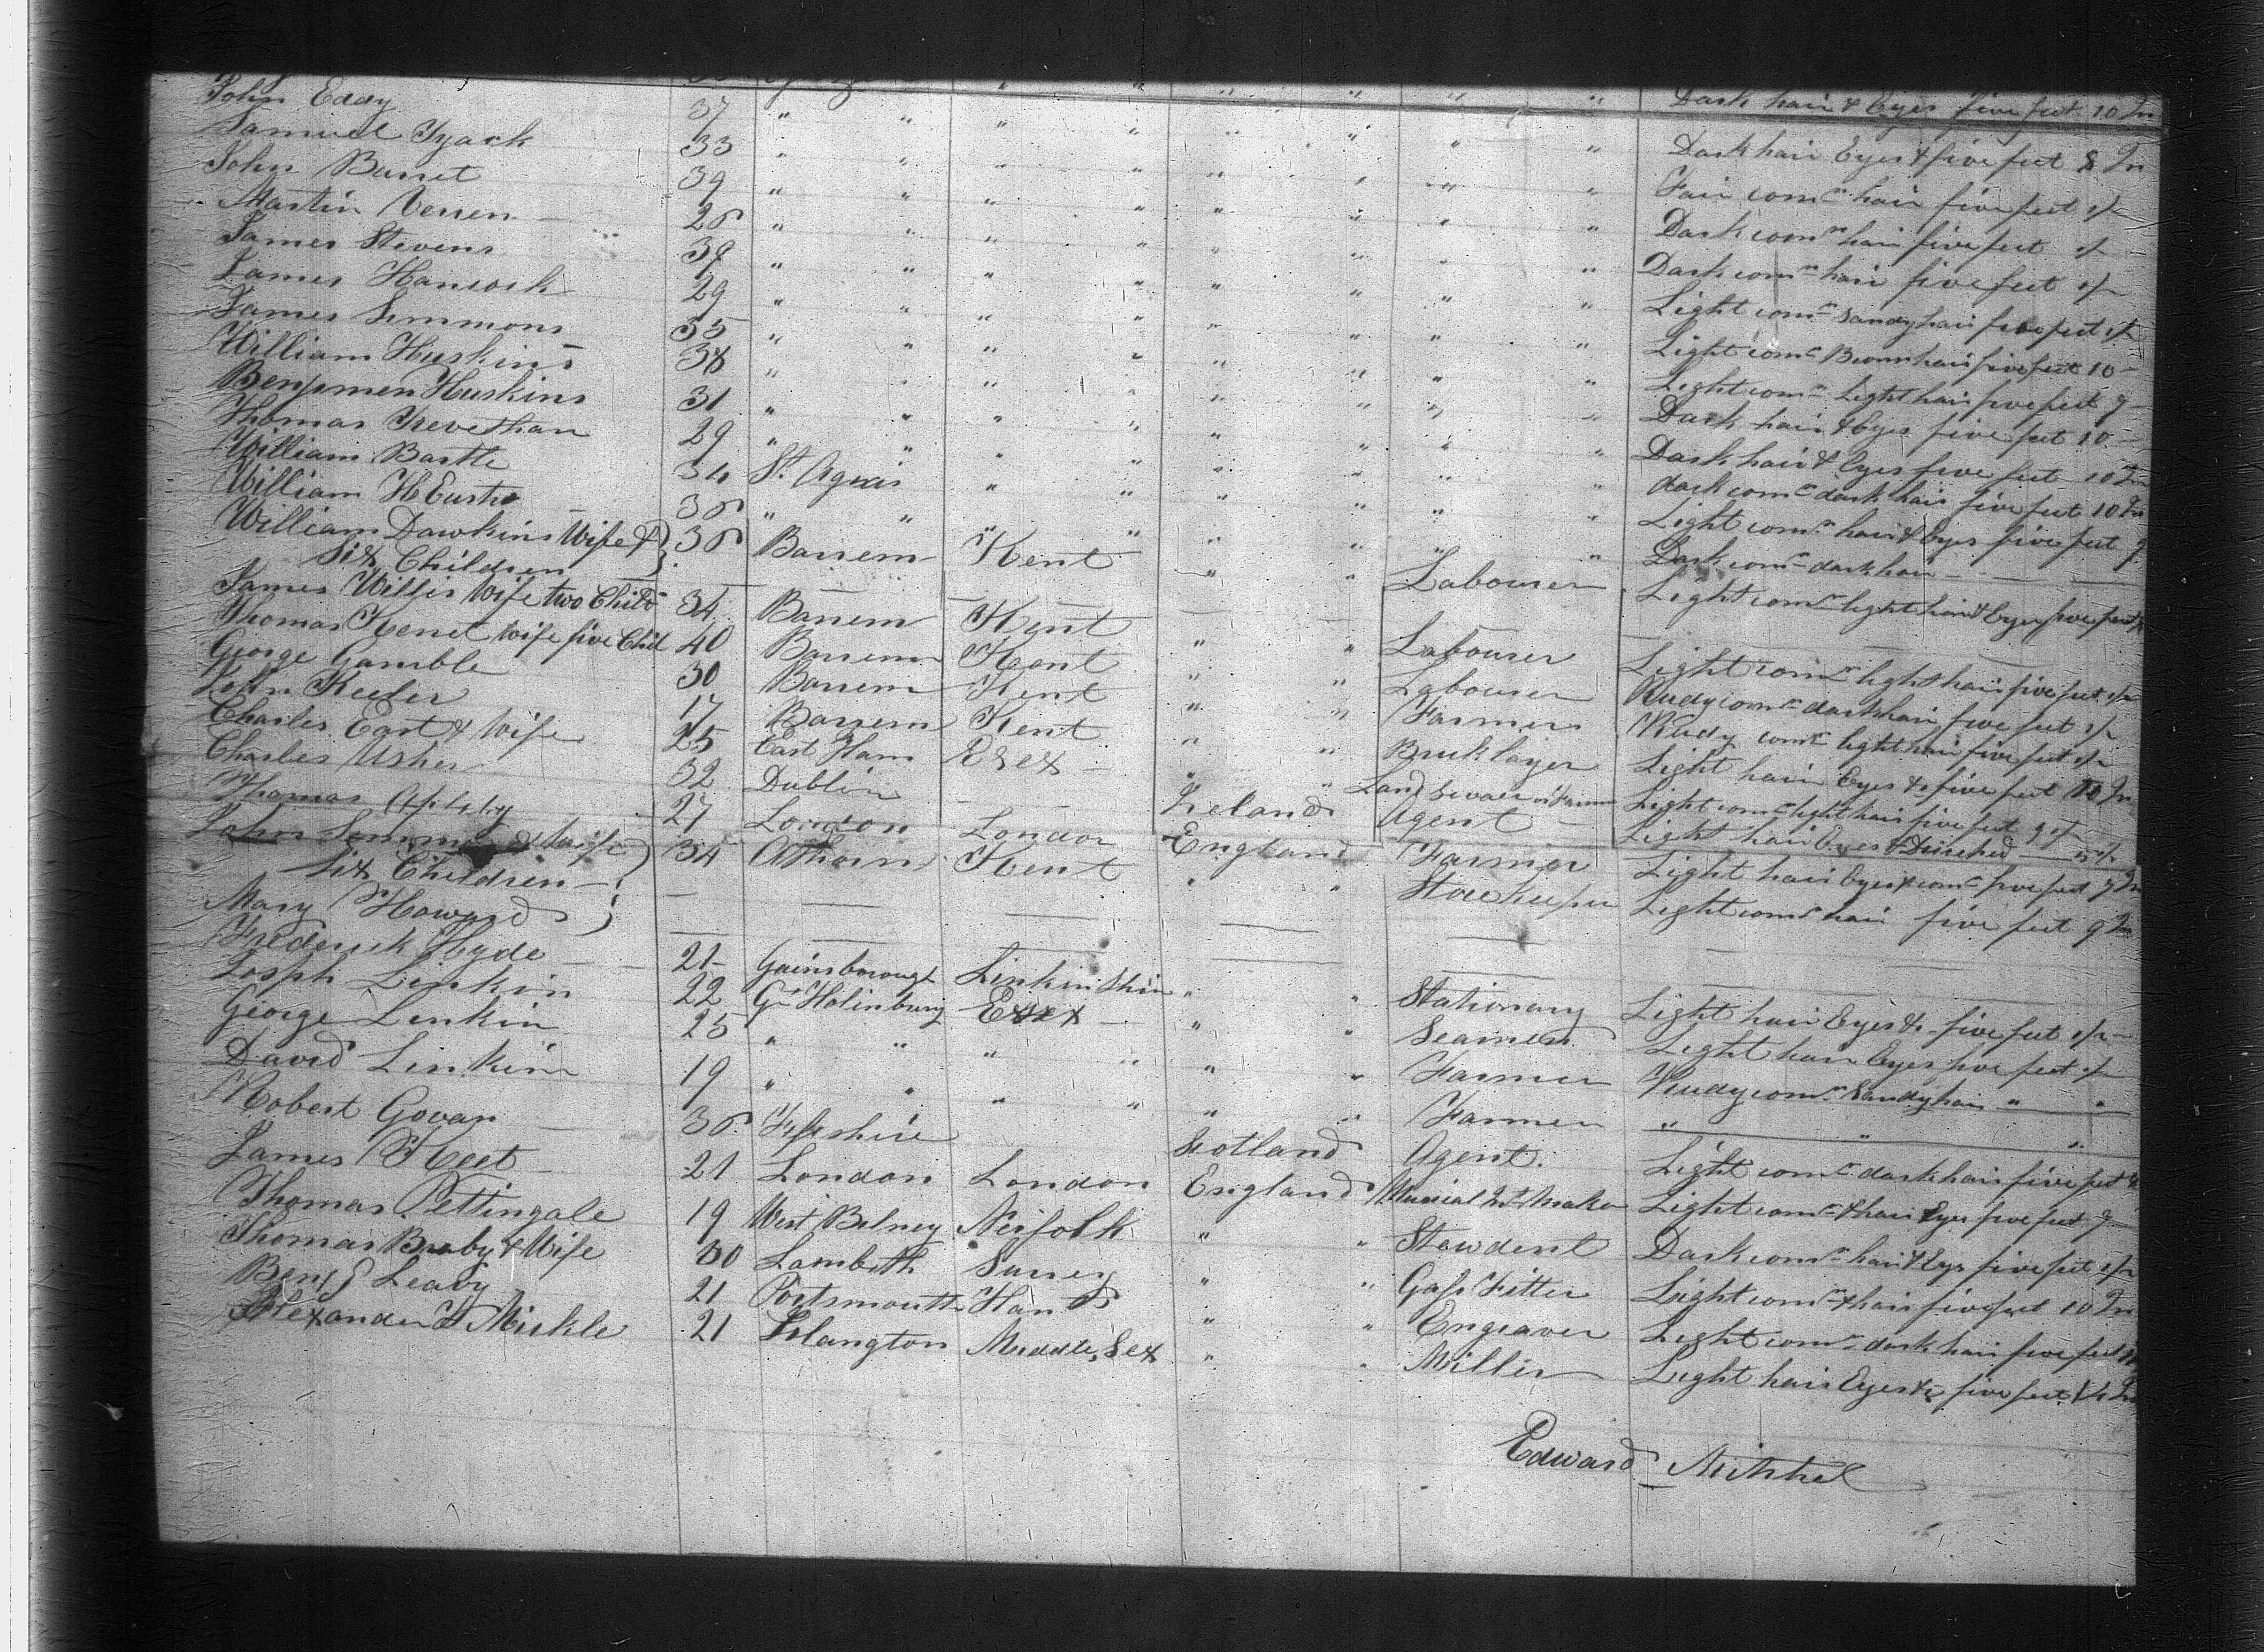 John Eddy 37 " " " " " " " " Dark hair & Eyes five feet 10 In
Samuel Tyack 33 " " " " " " " " Dark hair Eyes & five feet 8 In
John Barret 39 " " " " " " " " Fair com hair five feet
Martin Verren 26 " " " " " " " " Dark com hair five feet
James Stevens 39 " " " " " " " " Dark com hair five feet
James Hancock 29 " " " " " " " " Light com sandy hair five feet
James Simmons 35 " " " " " " " " Light com Brown hair five feet 10
William Huskins 38 " " " " " " " " Light com Light hair five feet 9
Benjmen Huskins 31 " " " " " " " " Dark hair & Eyes five feet 10
Thomas Trevethan 29 " " " " " " " " Dark hair & Eyes five feet 10 In
William Bartle 34 St. Agnis " " " " " " dark com dark hair five feet 10 In
William H 36 " " " " " " " " Light com hair & Eyes five feet
William Dawkins Wife & 36 Barrem Kent " " Labourer Dark com dark hair
Six Children
James Willis Wife two Child 34 Barrem Kent " " Labourer Light com light hair & Eyes five feet
Thomas Kenet wife five Chil 40 Barrem Kent " " Labourer Light com light hair five feet
George Gamble 30 Barrem Kent " " Farmer Rudy com dark hair five feet
John Keeler 17 Barrem Kent " " Bricklayer Rudy com light hair five feet
Charles East & Wife 25 East Ham Esex " " Land Light hair Eyes & five feet 10 In
Charles Usher 32 Dublin Ireland Agent Light com light hair five feet 9
Thomas 27 London London England Farmer Light hair Eyes &
John & wife 34 Athorn Kent " " Store Keeper Light hair Eyes & com five feet 9 In
Six Children Light com hair five feet 9 In
Mary Howard
Frederick Hyde 21 Gainsborough Linkinshire " " Stationary Light hair Eyes & five feet
Joseph Linkin 22 Gt Holinbury Esex " " Seamen Light hair Eyes five feet
George Linkin 25 " " " " " " Farmer Rudy com Sandy hair " "
David Linkin 19 " " " " " " Farmer " " "
Robert Govan 36 Fifeshire Scotland Agent. Light com dark hair five feet
James Keet 21 London London England Musical Int Maker Light com & hair Eyes five feet 9
Thomas Pettingale 19 West Bilney Norfolk " " Stewdent Dark com hair & Eys five feet
Thomas Braby & Wife 30 Lambeth Surrey " " Gass Fitter Light com & hair five feet 10 In
Benj Leary 21 Portsmouth Hants " " Engraver Light com dark hair five feet
Alexander Mickle 21 Islangton Middle Sex " " Miller Light hair Eyes & five feet In
Edward Mitchel